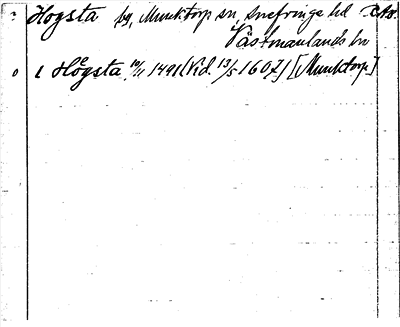 Hogsta by, Munktorp sn, Snefringe hd
Västmanlands län
i Högsta 10/11 1491 (Vid. 13/5 1607) [Munktorp]